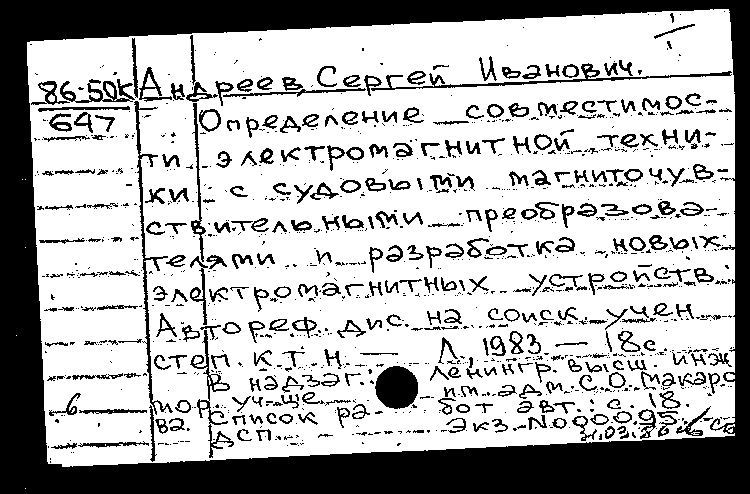 86-50к Андреев, Сергей Иванович.
647 Определение совместимос-
ти электромагнитной техни-
ки с судовыми магниточув-
ствительными преобразова-
телями и разработка новых
электромагнитных устройств.
Автореф. дис. на соиск. учен.
степ. к.т.н. — Л, 1983 — 18с.
В надзаг.: Ленингр. высш. инж.
6 мор. уч-ще им. адм. С.О. Макаро
ва. Список работ авт.: с. 18.
ДСП. Экз. №00095.